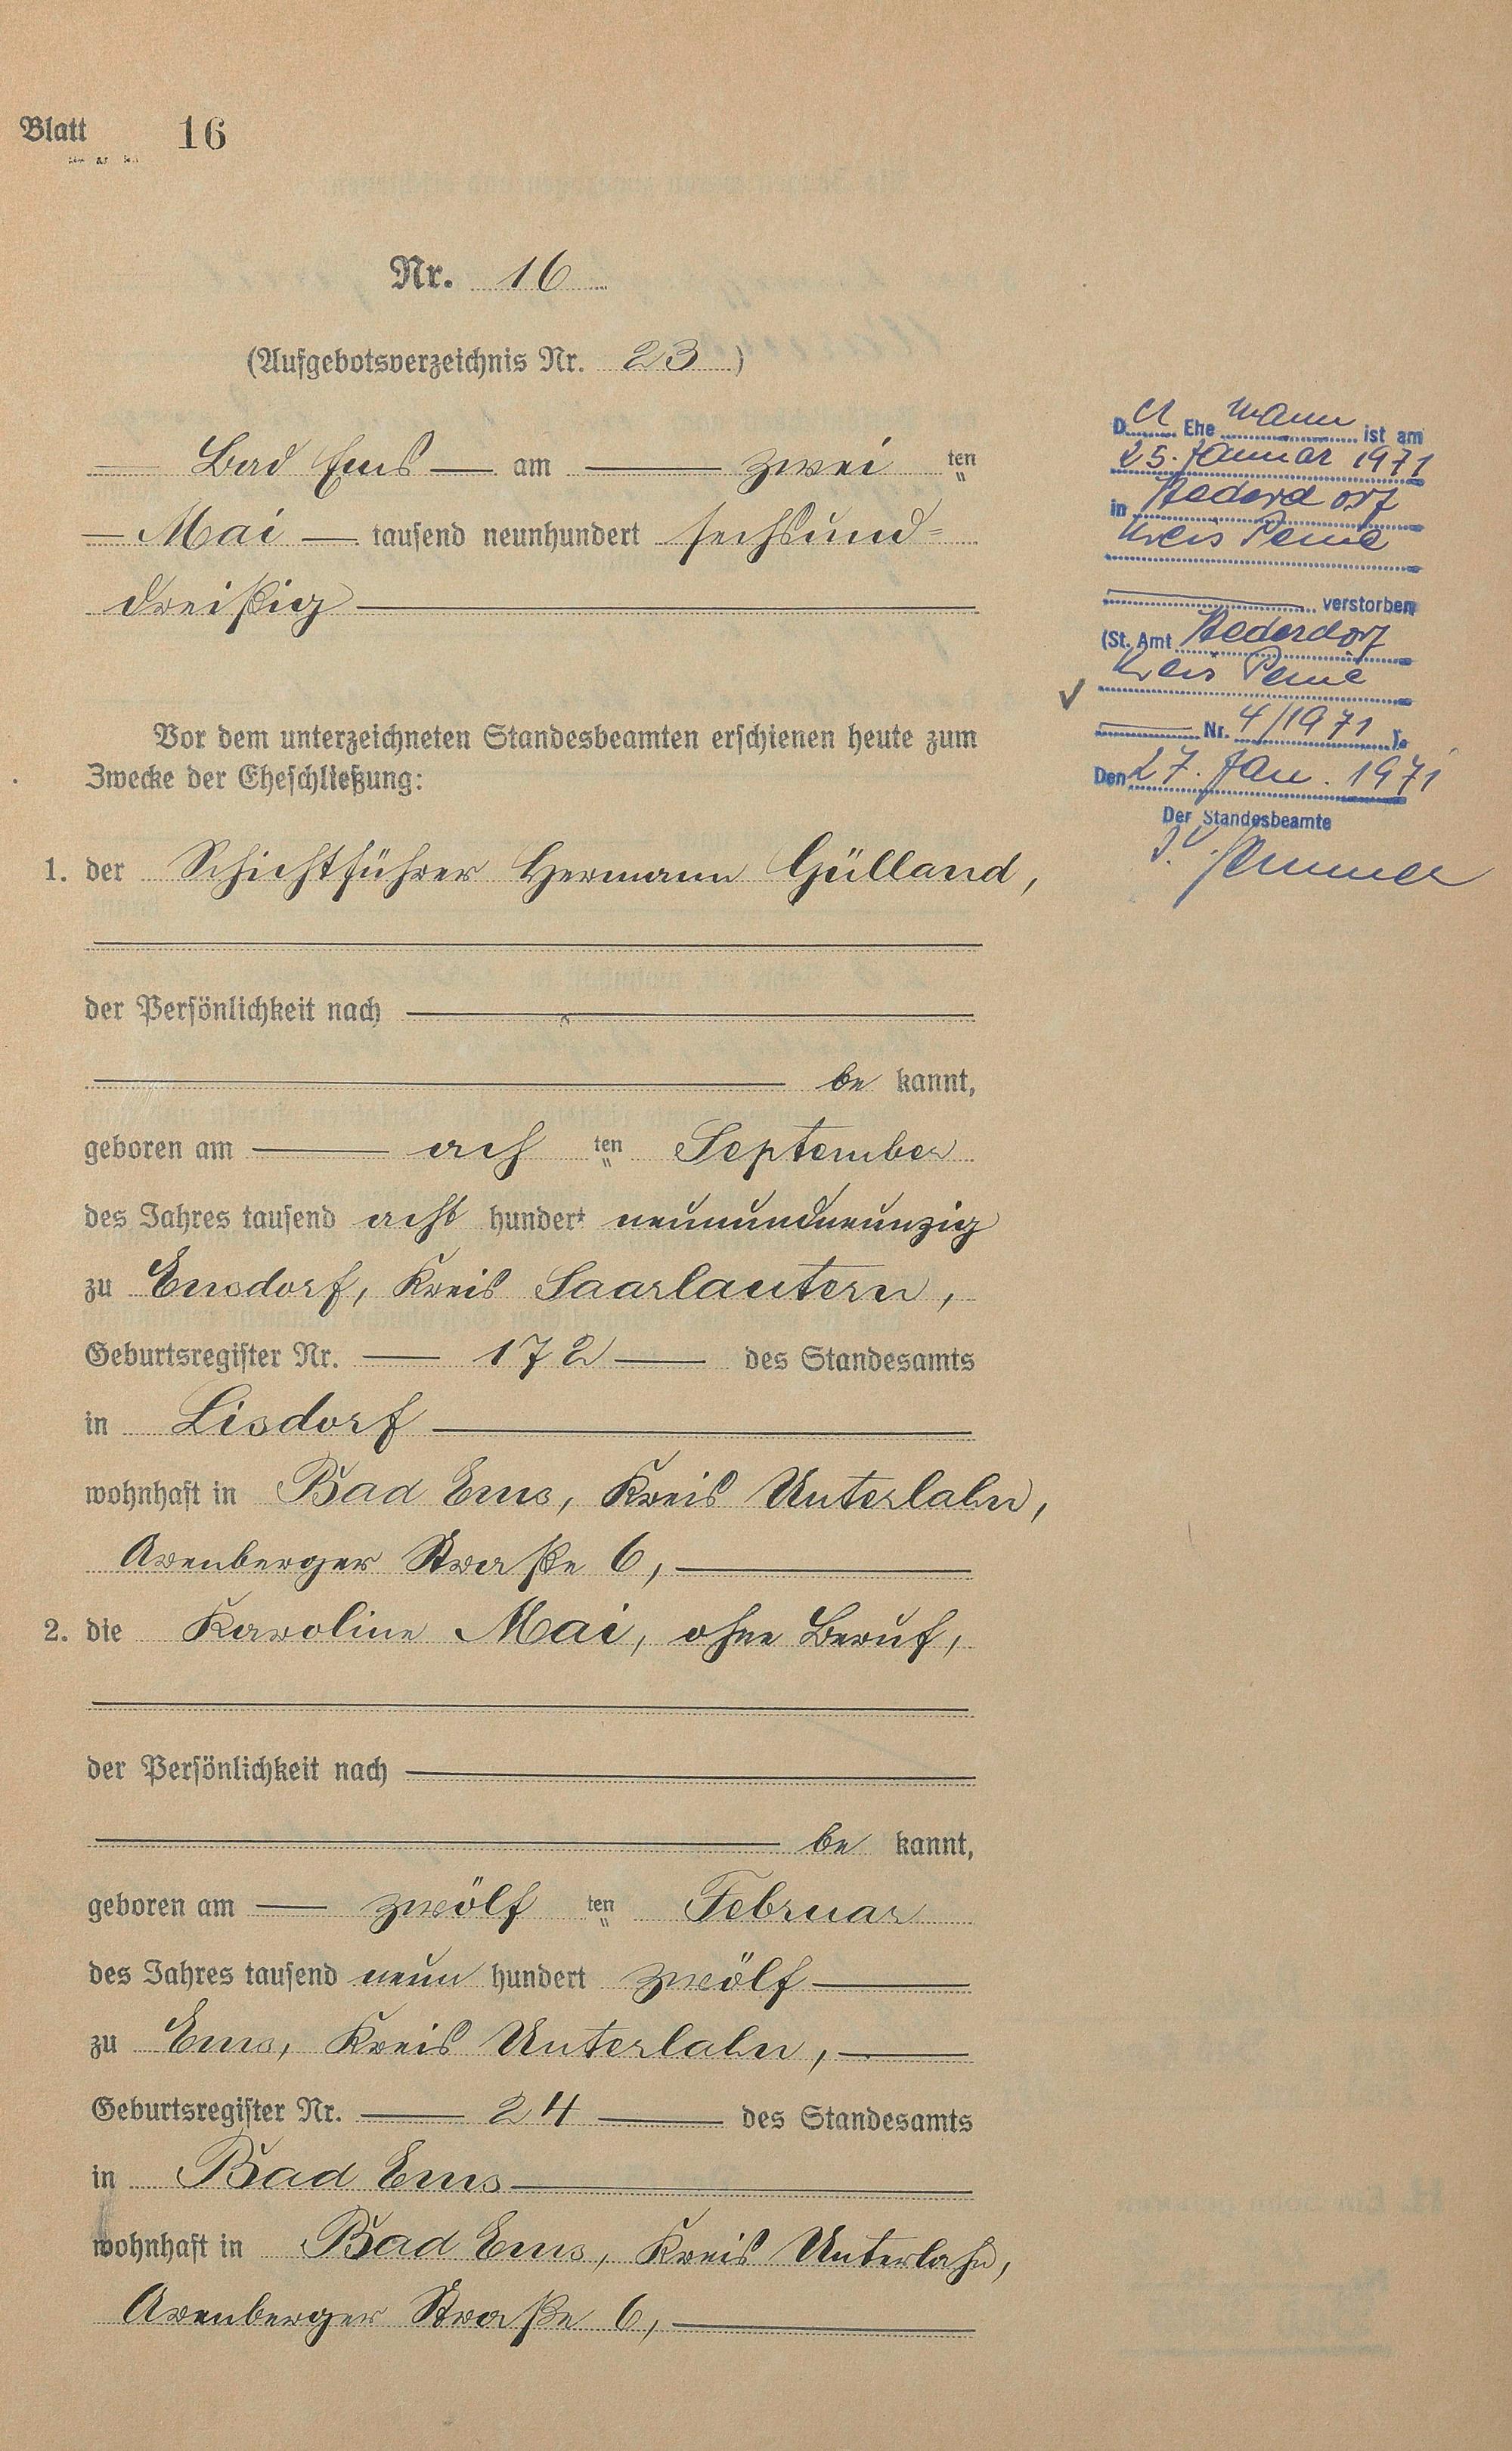 Blatt 16
Nr. 16
(Aufgebotsverzeichnis Nr. 23)
Bad Ems — am — zwei ten
— Mai — tausend neunhundert sechsund=
dreißig
Vor dem unterzeichneten Standesbeamten erschienen heute zum
Zwecke der Eheschließung:
1. der Schichtführer Hermann Gülland,
der Persönlichkeit nach
be kannt,
geboren am — ach ten September
des Jahres tausend acht hundert neunundneunzig
zu Ensdorf, Kreis Saarlautern,
Geburtsregister Nr. — 172 — des Standesamts
in Lisdorf
wohnhaft in Bad Ems, Kreis Unterlahn,
Arenberger Straße 6,
2. die Karoline Mai, ohne Beruf,
der Persönlichkeit nach
be kannt,
geboren am — zwölf ten Februar
des Jahres tausend neun hundert zwölf
zu Ems, Kreis Unterlahn,
Geburtsregister Nr. — 24 — des Standesamts
in Bad Ems
wohnhaft in Bad Ems, Kreis Unterlahn,
Arenberger Straße 6,
D er Ehe mann ist am
25. Januar 1971
in Stederdorf
Kreis Peine
verstorben
(St. Amt Stederdorf
Kreis Peine
Nr. 4/1971 ).
Den 27. Jan. 1971
Der Standesbeamte